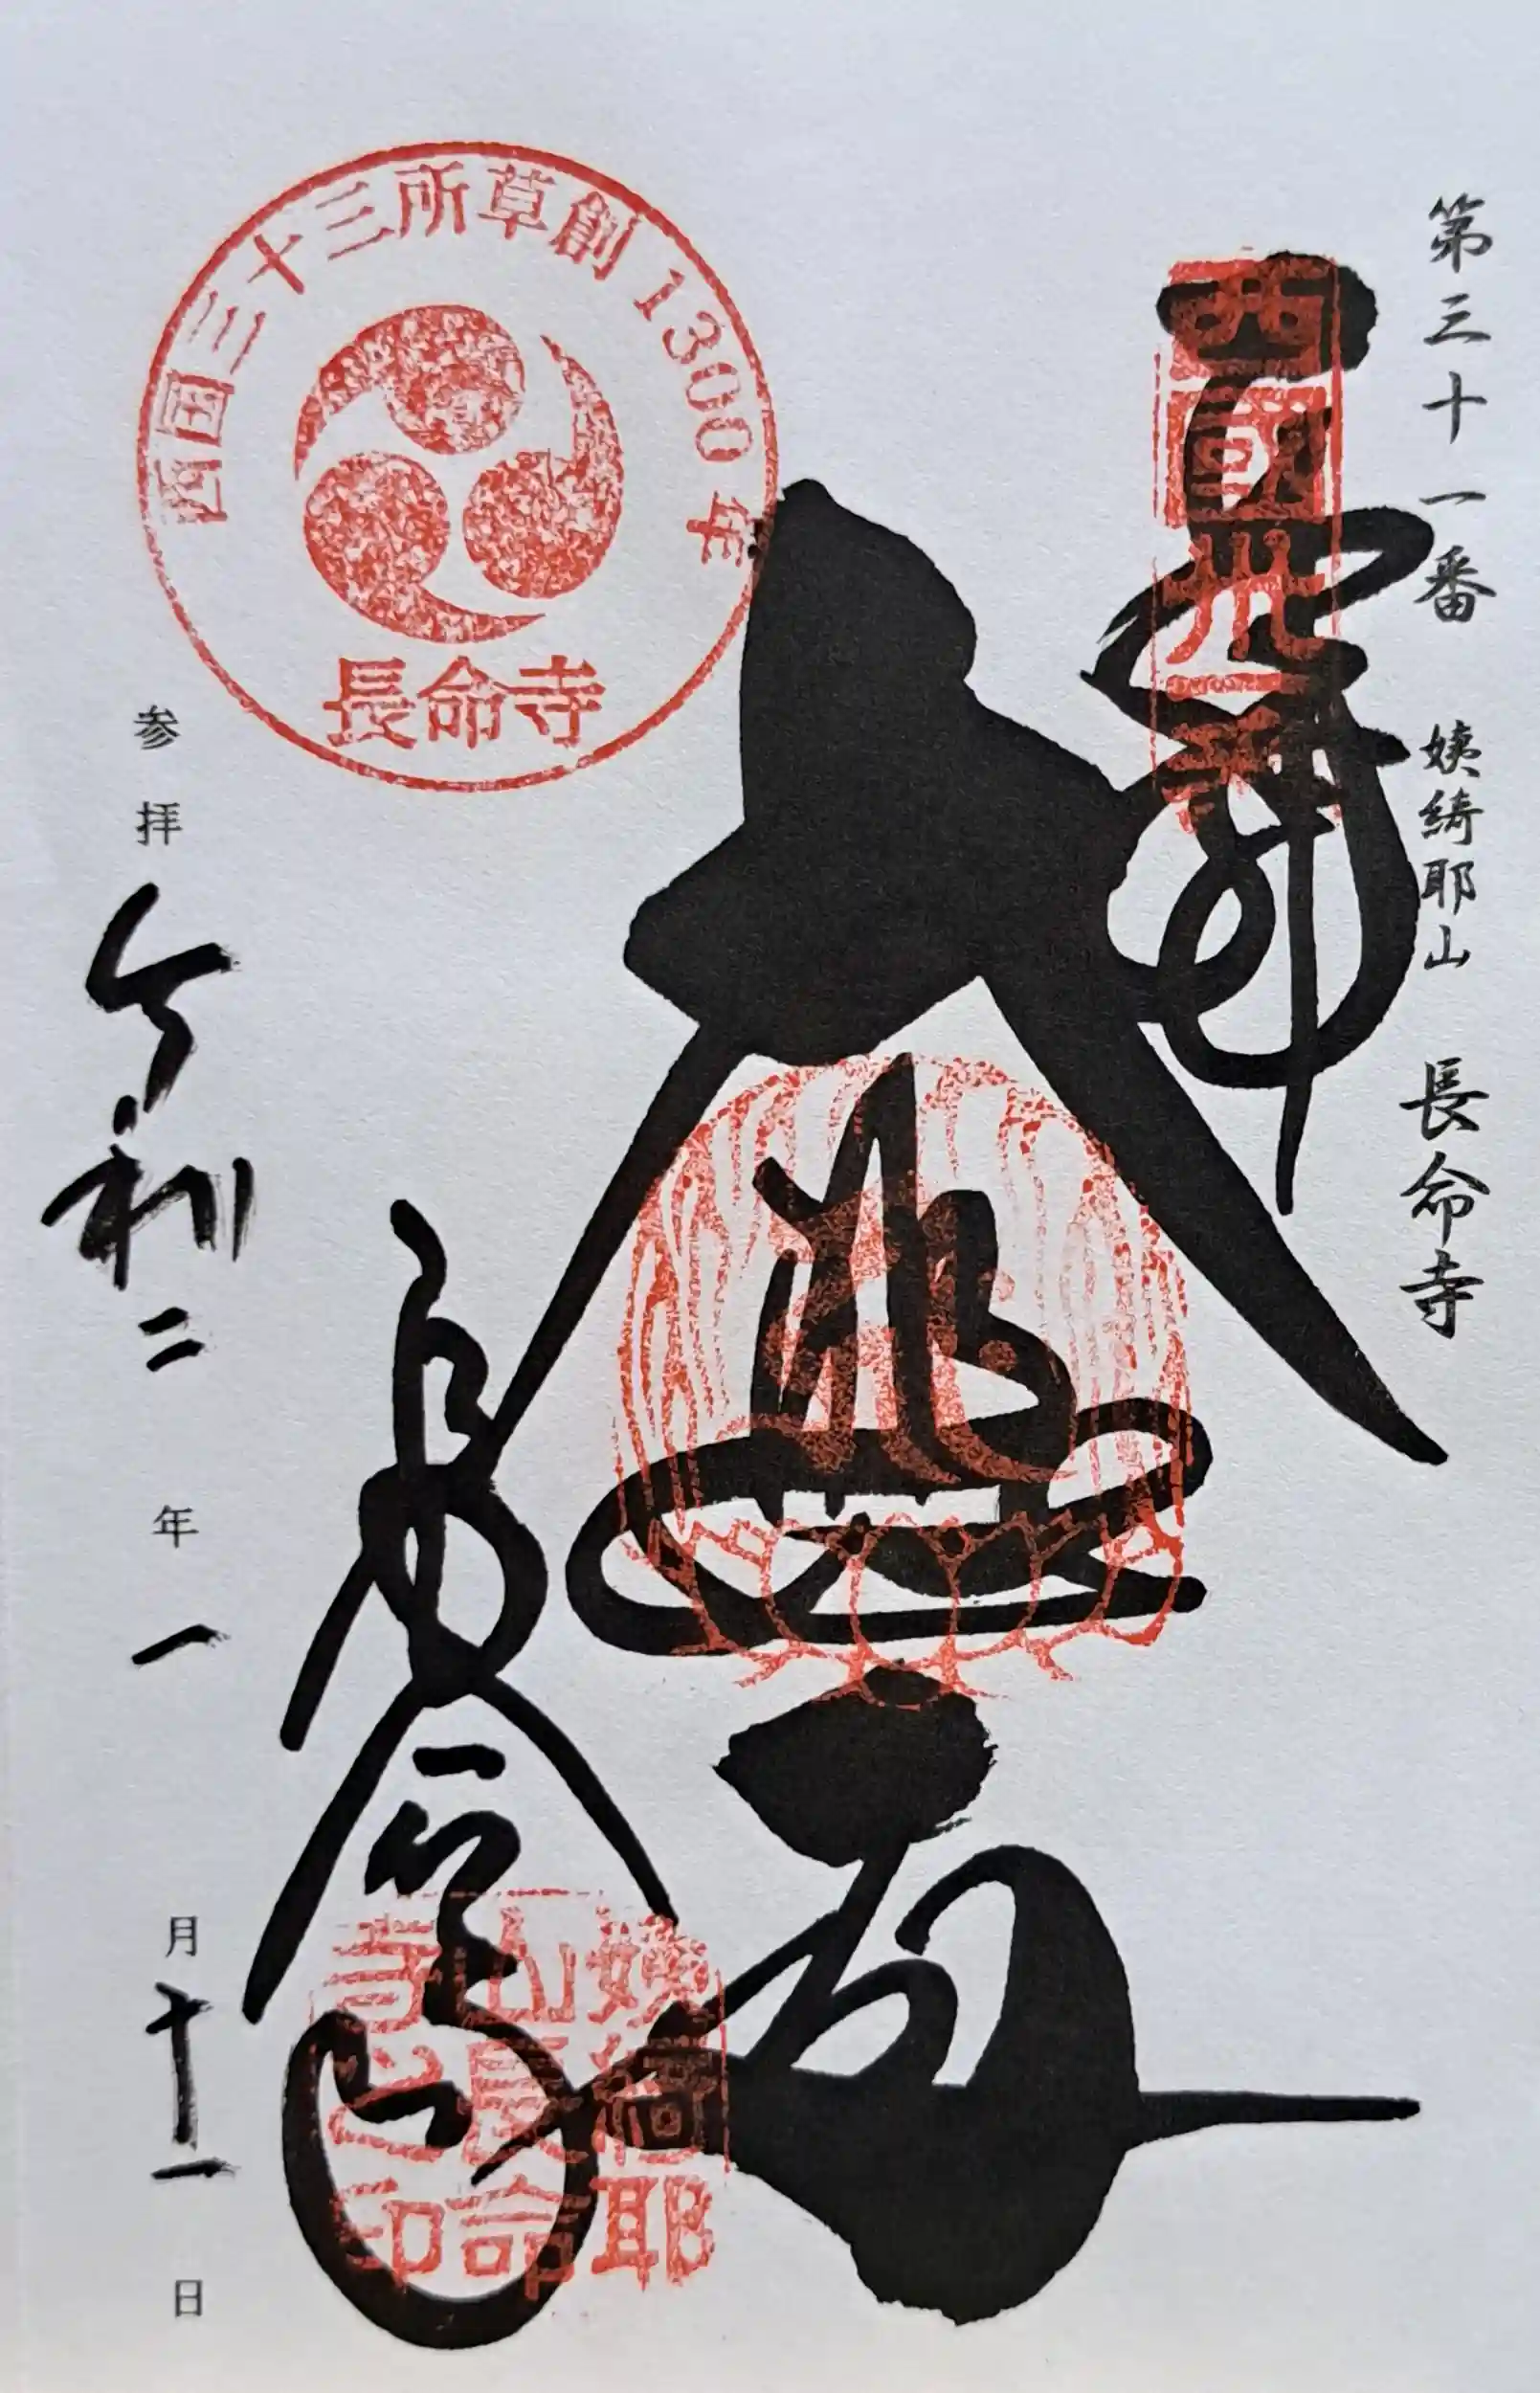 第三十一番 姨綺耶山 長命寺
西國卅一番
奉拝
大悲殿
西国三十三所草創1300年
長命寺
長命寺
姨綺耶
山長命
寺之印
参拝 令和二年一月十一日